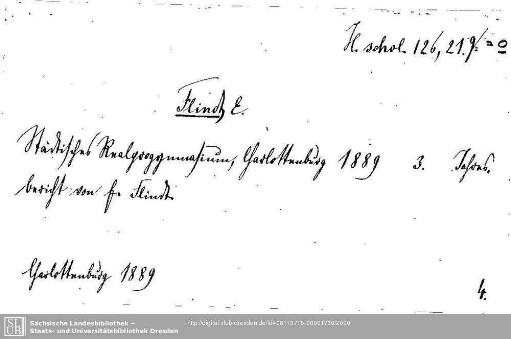 H. schol. 126, 21.
Flindt, E.
Städtisches Realprogymnasium, Charlottenburg 1889 3. Jahres-
bericht von E. Flindt.
Charlottenburg 1889
4.
SLUB
Sächsische Landesbibliothek –
Staats- und Universitätsbibliothek Dresden